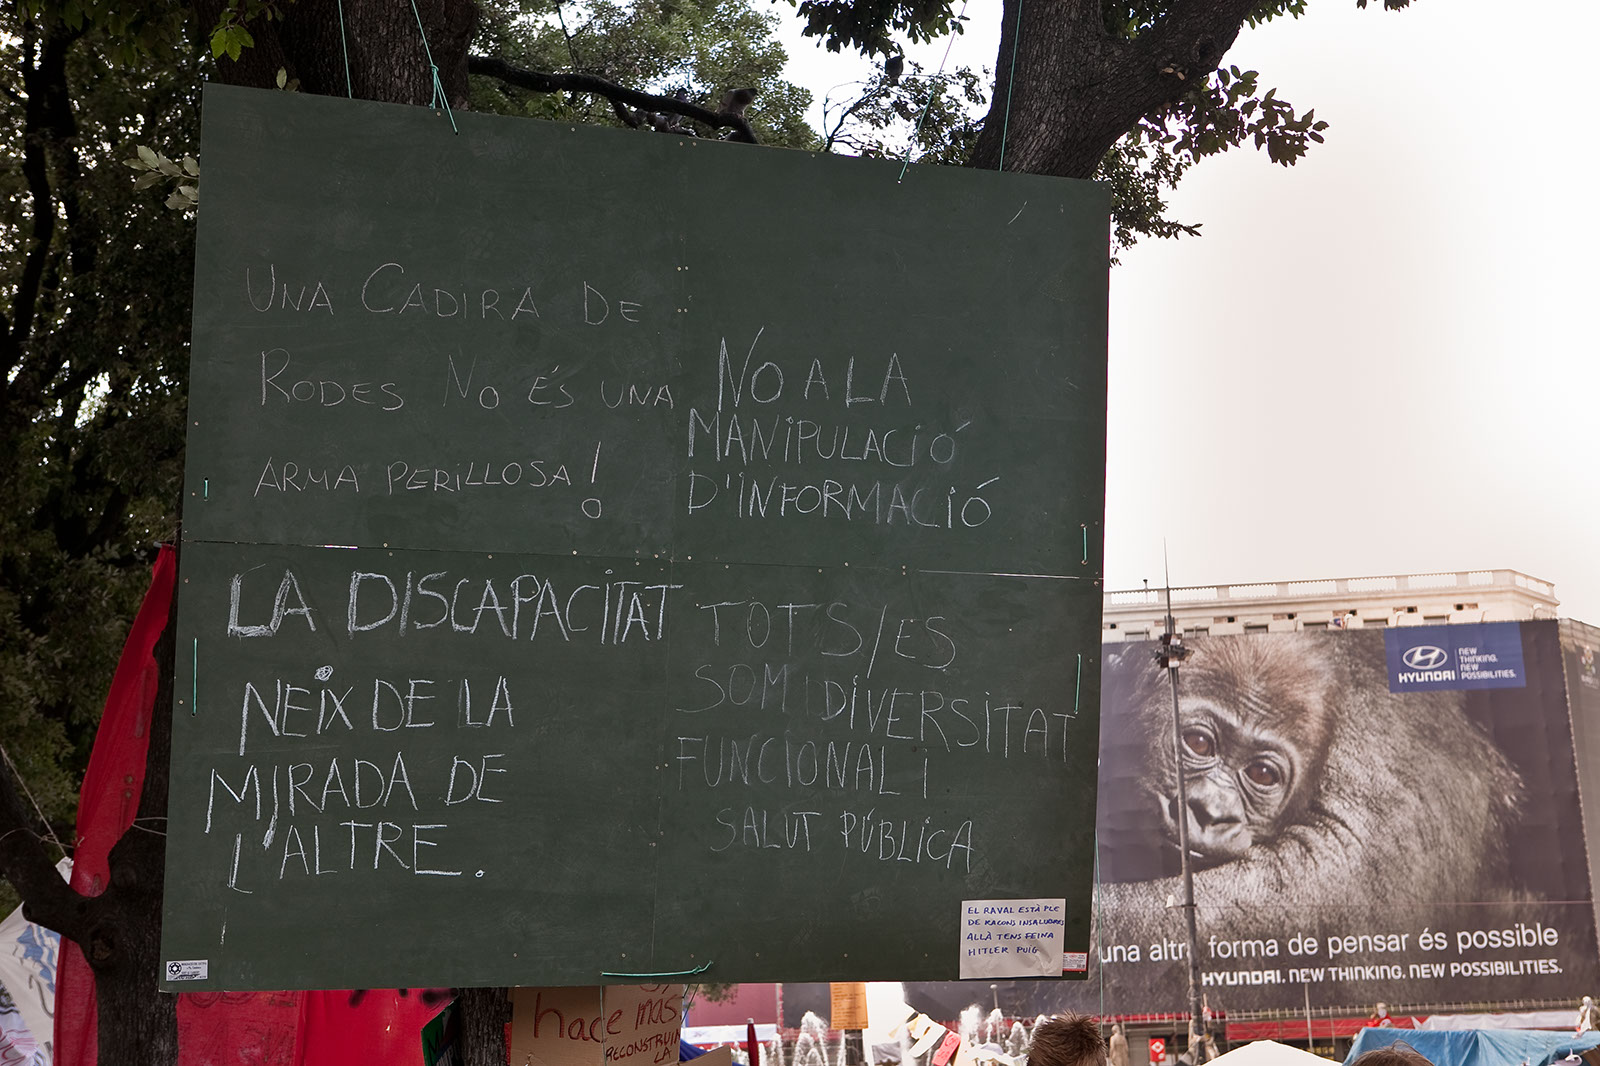 UNA CADIRA DE
RODES NO ÉS UNA
ARMA PERILLOSA!
NO A LA
MANIPULACIÓ
D'INFORMACIÓ
LA DISCAPACITAT
NEIX DE LA
MIRADA DE
L'ALTRE.
TOTS/ES
SOM DIVERSITAT
FUNCIONAL i
SALUT PÚBLICA
EL RAVAL ESTÀ PLE
DE RACONS INSALUBRES
ALLÀ TENS FEINA
HITLER PUIG
hace mas
RECONSTRUIR
LA
HYUNDAI
NEW
THINKING.
NEW
POSSIBILITIES.
una altra forma de pensar és possible
HYUNDAI. NEW THINKING. NEW POSSIBILITIES.